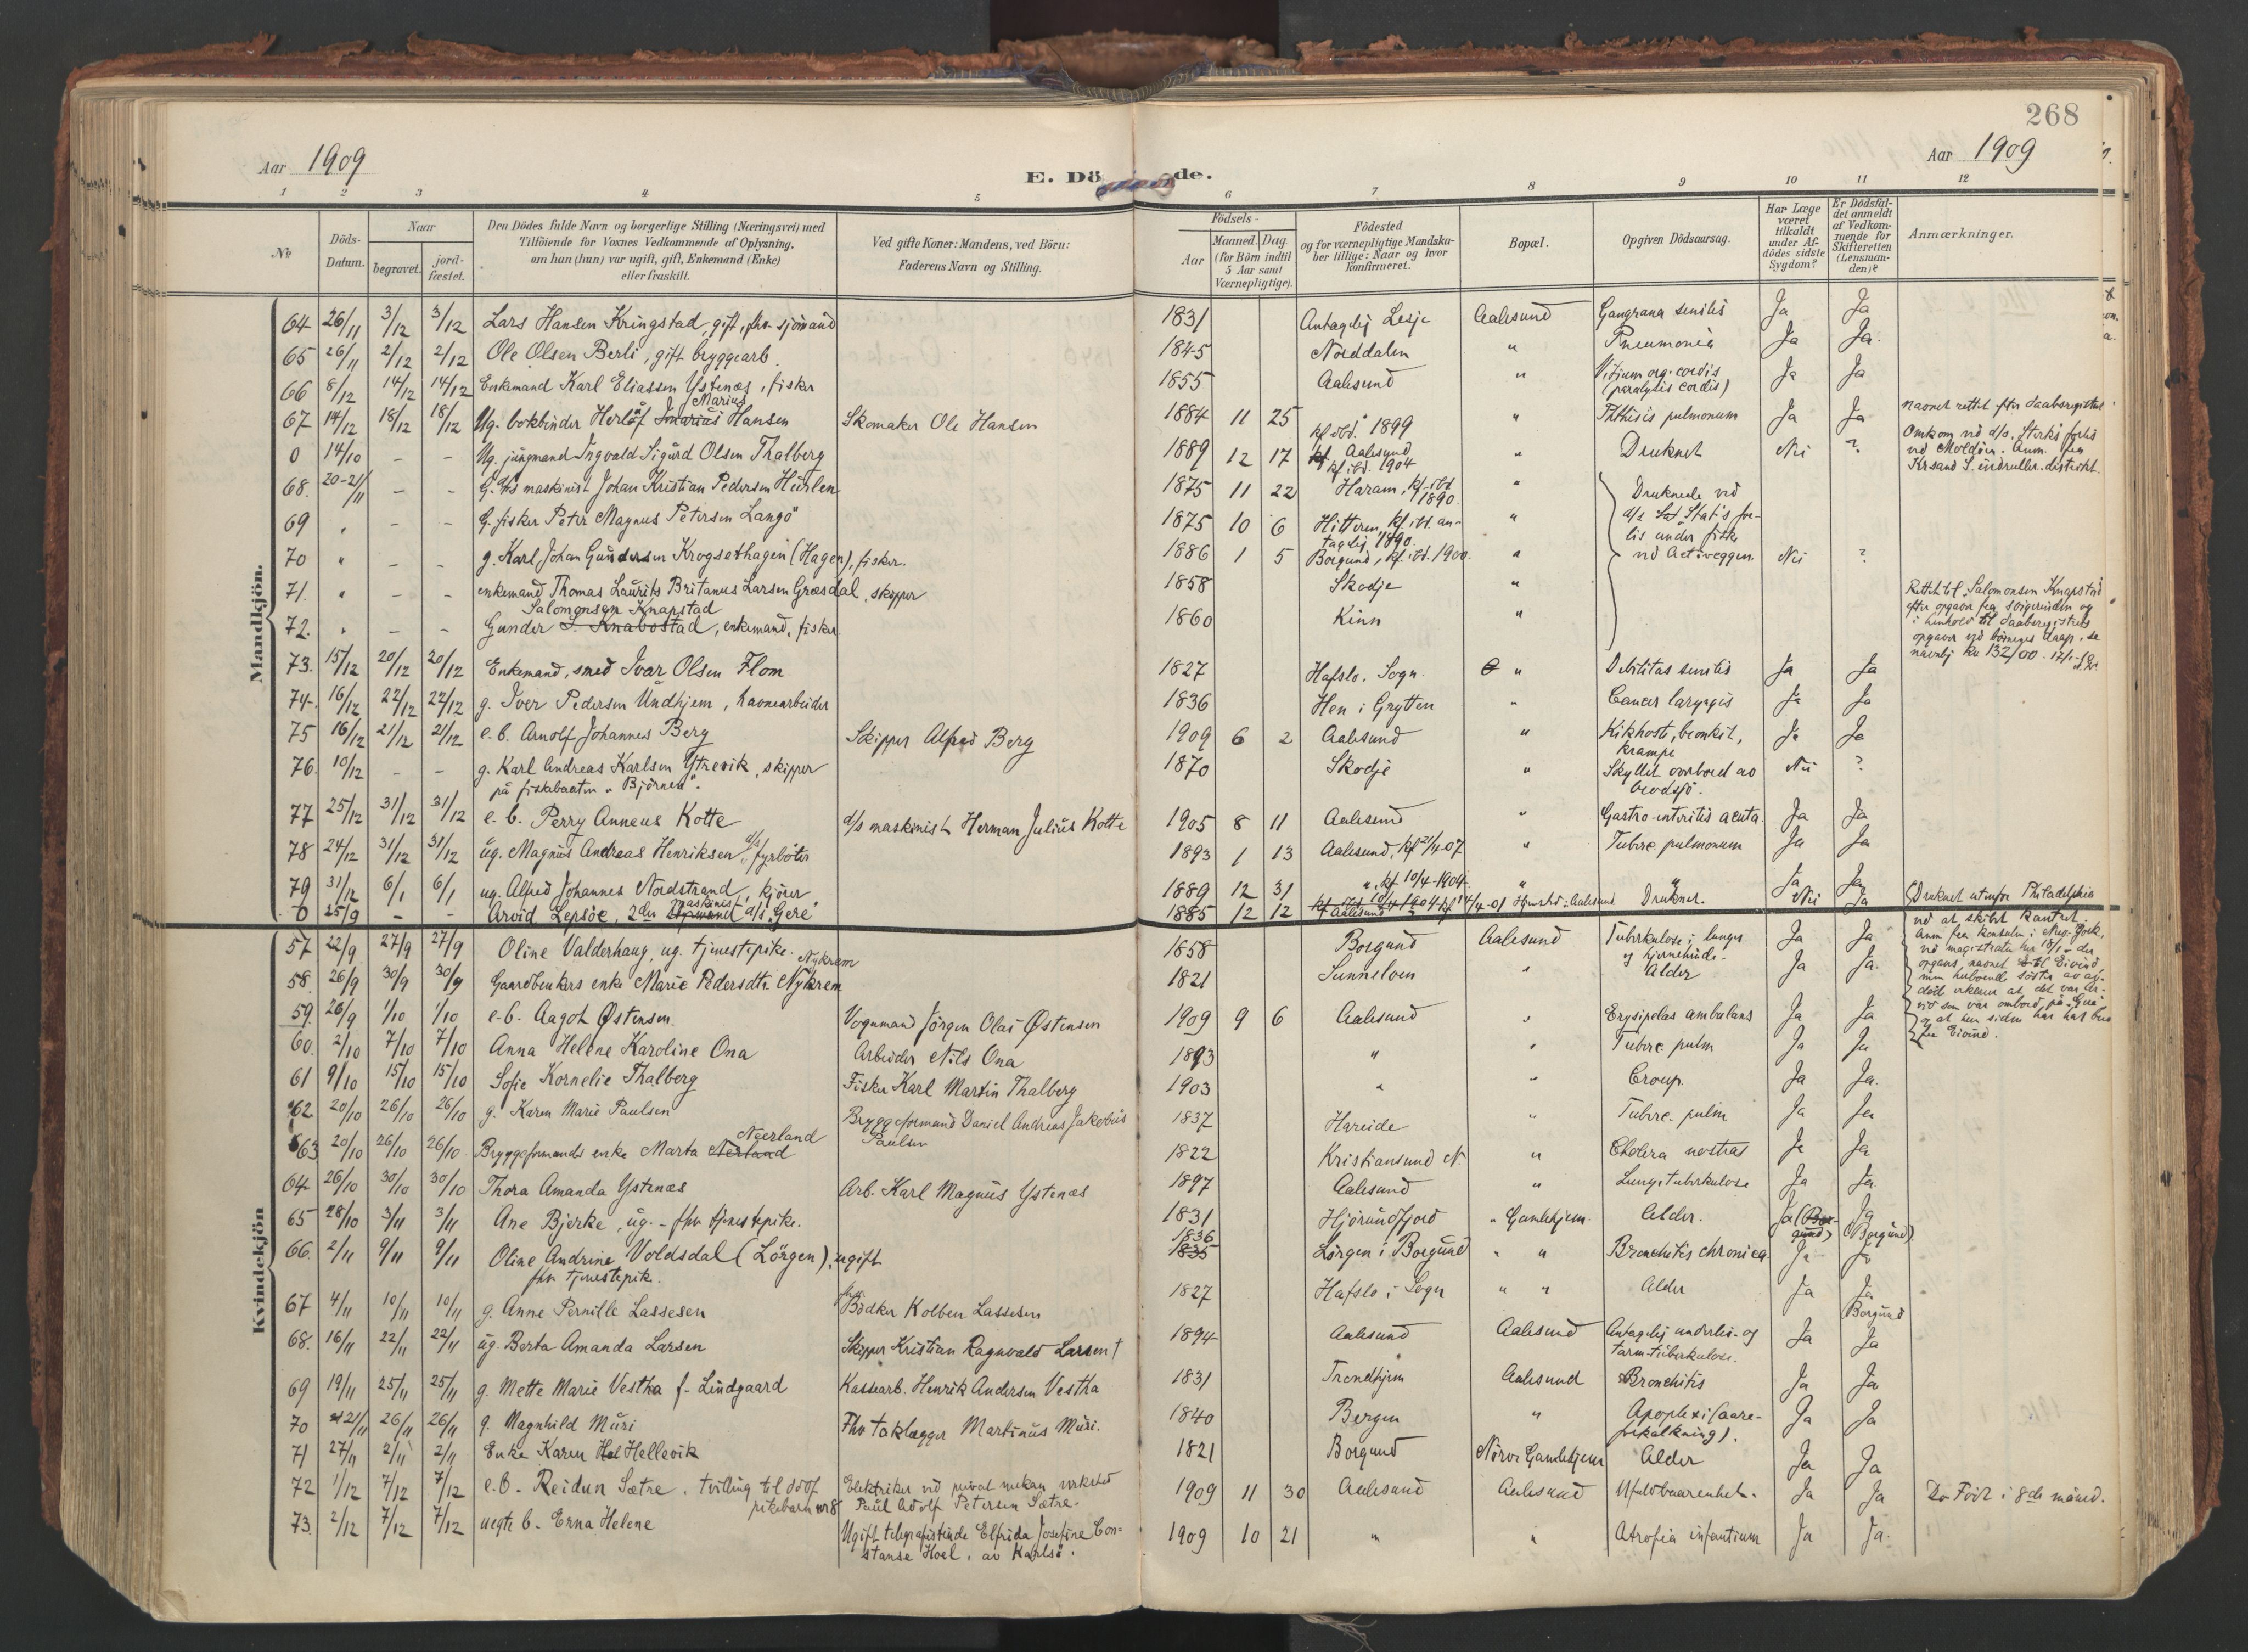 268
Aar 1909
E. Dö de.
Aar 1909
1 2 3 4 5 6 7 8 9 10 11 12
No
Döds-Datum.
Naar
begravet.
jord-fæstet.
Den Dödes fulde Navn og borgerlige Stilling (Næringsvei) med
Tilföiende for Voxnes Vedkommende af Oplysning,
om han (hun) var ugift, gift, Enkemand (Enke)
eller fraskilt.
Ved gifte Koner: Mandens, ved Börn:
Faderens Navn og Stilling.
Födsels-
Aar
Maaned. Dag.
(for Börn indtil
5 Aar samt
Værnepligtige).
Födested
og for værnepligtige Mandska-
ber tillige: Naar og hvor
konfirmeret.
Bopæl.
Opgiven Dödsaarsag.
Har Læge
været
tilkaldt
under Af-
dödes sidste
Sygdom?
Er Dödsfal-
det anmeldt
af Vedkom-
mende for
Skifteretten
(Lensman-
den)?
Anmærkninger.
Mandkjön.
64 26/11 3/12 3/12 Lars Hansen Kringstad, gift, fhv. sjömand 1831 Antagelig Lesje Aalesund Gangræna senilis Ja Ja
65 26/11 2/12 2/12 Ole Olsen Berli, gift bryggearb. 1845 Norddalen " Pneumonia Ja Ja.
66 8/12 14/12 14/12 Enkemand Karl Eliassen Ystenæs, fisker 1855 Aalesund " Vitium org. cordis Ja Ja
(paralysis cordis)
Marius
67 14/12 18/12 18/12 Ug. bokbinder Herlof Hansen Skomaker Ole Hansen 1884 11 25 " kf ibd. 1899 " Phthisis pulmonum Ja Ja Navnet rettet efter daabsregistret
0 14/10 – – Ug. jungmand Ingvald Sigurd Olsen Thalberg 1889 12 17 Aalesund " Druknet Nei ? Omkom ved d/s. Sterks forlis
kf ibd. 1904
ved Moldøen. Anm. fra
Krsand S. indruller. distrikt.
68. 20-21/11 – – G. d/s maskinist Johan Kristian Pedersen Hurlen 1875 11 22 Haram, kf. ibd. 1890. " Druknede ved
69 " – – G. fisker Peter Magnus Petersen Langö 1875 10 6 Hitteren, kf. ibd. an- " d/s Statis for-
tagelig 1890. lis under fiske
70 " – – g. Karl Johan Gundersen Krogsethagen (Hagen), fisker. 1886 1 5 Borgund, kf. ibd. 1900. " ved Activeggen. Nei ?
71. " – – enkemand Thomas Laurits Britanus Larsen Græsdal, skipper 1858 Skodje "
Salomonsen Knapstad
72. " – – Gunder S. Knabostad, enkemand, fisker. 1860 Kinn " Rettet til Salomonsen Knapstad
efter opgave fra svigerinden og
i henhold til daabsregistrets
opgaver ved börnenes daap, se
navnlig No 132/00.
73. 15/12 20/12 20/12 Enkemand, smed Ivar Olsen Flom 1827 Hafslo. Sogn " Debilitas senilis Ja Ja
74. 16/12 22/12 22/12 g. Iver Pedersen Undhjem, havnearbeider 1836 Hen i Grytten " Cancer laryngis Ja Ja
75 16/12 21/12 21/12 e. b. Arnolf Johannes Berg Skipper Alfred Berg 1909 6 2 Aalesund " Kikhoste, bronkit, Ja Ja
krampe
76. 10/12 – – g. Karl Andreas Karlsen Ytrevik, skipper 1870 Skodje " Skyllet overbord av Nei ?
på fiskebaaten "Björnen". brodsjö.
77 25/12 31/12 31/12 e. b. Perry Anneus Kotte d/s maskinist Herman Julius Kotte 1905 8 11 Aalesund " Gastro-enteritis acuta. Ja Ja
78 24/12 31/12 31/12 ug. Magnus Andreas Henriksen, d/s fyrböter 1893 1 13 Aalesund, kf 21/4 07 " Tuberc. pulmonum Ja Ja
79 31/12 6/1 6/1 ug. Alfred Johannes Nordstrand, kjörer 1889 12 31 ", kf 10/4-1904. " " Ja Ja
0 25/9 – – Arvid Lepsöe, 2den maskinist d/s "Gere" 1885 12 12 Aalesund kf 14/4-01 Aalesund Druknet. Nei Ja Druknet utenfor Philadelphia
ved at skibet kantret.
Anm fra konsulen i New-York,
ved magistraten her 18/1- der
opgav, navnet til Eivind
men
död erklærer at det var Ar-
vid som var ombord på "Gere"
og at hun siden har hat brev
fra Eivind.
Kvindekjön
57 22/9 27/9 27/9 Oline Valderhaug, ug. tjenestepike. 1858 Borgund Aalesund Tuberkulose i lunger Ja Ja
og hjernehinde.
Nykrem
58. 26/9 30/9 30/9 Gaardbrukers enke Marie Pedersdtr. Nykrem 1821 Sunnsloen " Alder Ja Ja.
59. 26/9 1/10 1/10 e. b. Aagot Østensen. Vognmand Jörgen Olai Østensen 1909 9 6 Aalesund " Erysipelas ambulans Ja Ja
60. 2/10 7/10 7/10 Anna Helene Karoline Ona Arbeider Nils Ona 1893 " " Tuberc. pulm Ja Ja
61 9/10 15/10 15/10 Sofie Kornelie Thalberg Fisker Karl Martin Thalberg 1903 " " Croup. Ja Ja.
62 20/10 26/10 26/10 g. Karen Marie Paulsen Bryggeformand Daniel Andreas Jakobus 1837 Hareide " Tuberc. pulm Ja Ja
Paulsen
Neerland
63 20/10 26/10 26/10 Bryggeformands enke Marta Nerland 1822 Kristiansund N. " Cholera nostras Ja Ja
64 26/10 30/10 30/10 Thora Amanda Ystenæs Arb. Karl Magnus Ystenæs 1897 Aalesund " Lungetuberkulose Ja Ja
65 28/10 3/11 3/11 Ane Bjerke, ug. - fhv tjenestepike. 1831 Hjörundfjord " Gamlehjem. Alder. Ja (Bor-gund) Ja (Borgund).
1836
66. 2/11 9/11 9/11 Oline Andrine Voldsdal (Lörgen), ugift 1835 Lörgen i Borgund " " Bronchitis chronica Ja Ja
fhv tjenestepike.
67 4/11 10/11 10/11 g. Anne Pernille Lassesen Bödker Kolben Lassesen 1827 Hafslo i Sogn " " Alder Ja Ja Borgund
68. 16/11 22/11 22/11 ug. Berta Amanda Larsen Skipper Kristian Ragnvald Larsen † 1894 Aalesund Aalesund Antagelig underlivs- og Ja Ja
tarm-tuberkulose.
69 19/11 25/11 25/11 g. Mette Marie Vestha f. Lindgaard Kassearb. Henrik Andersen Vestha 1831 Trondhjem Aalesund Bronchitis Ja Ja
70 21/11 26/11 26/11 g. Magnhild Muri Fhv taklægger Martinus Muri. 1840 Bergen " Apoplexi (aare- Ja Ja
forkalkning).
71 27/11 2/11 2/11 Enke Karen Hellevik 1821 Borgund Nörve Gamlehjem Alder Ja Ja
72 1/12 7/12 7/12 e. b. Reidun Sætre, tvilling til dödf. Elektriker ved privat mekan verksted 1909 11 30 Aalesund Aalesund Ufuldbaarenhet. Ja Ja Född i 8de måned.
pikebarn nr 8 Paul Adolf Petersen Sætre.
73. 2/12 7/12 7/12 uegte b. Erna Helene Ugift telegrafistinde Elfrida Josefine Con- 1909 10 21 " " Atrofia infantium Ja Ja.
stanse Hoel, av Karlsö.